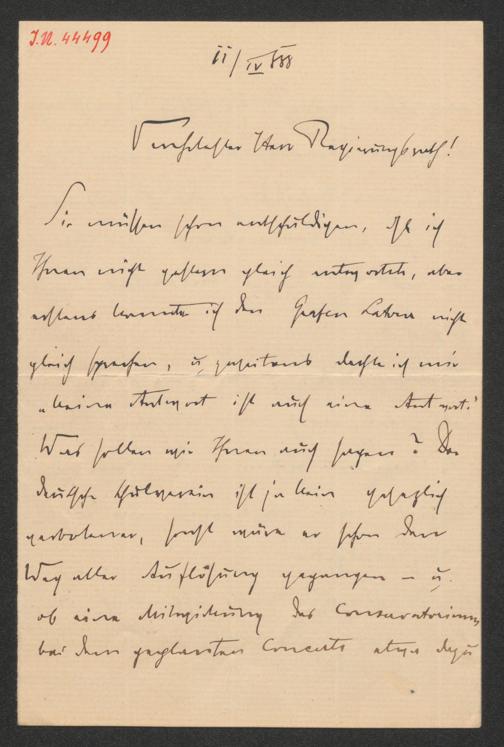 J.N. 44499
11/IV 888
Verehrtester Herr Regierungsrath!
Sie müssen schon entschuldigen, daß ich
Ihnen nicht gestern gleich antwortete, aber
erstens konnte ich den Grafen Latour nicht
gleich sprechen, u. zweitens dachte ich mir
"keine Antwort ist auch eine Antwort."
Was sollen wir Ihnen auch sagen? Der
deutsche Schulverein ist ja kein gesetzlich
verbotener, sonst wäre er schon den
Weg aller Auflösung gegangen – u.
ob eine Mitwirkung des Conservatoriums
bei dem geplanten Concerte etwa dazu